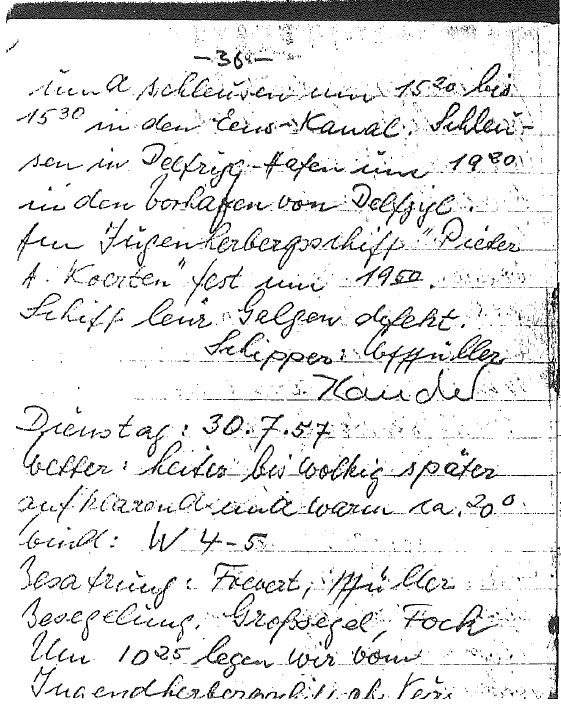 -36-
und schleusen um 15²⁰ bis
15³⁰ in den Eems-Kanal. Schleu-
sen in Delfzyl-Hafen um 19²⁰
in den Vorhafen von Delfzyl.
Am Jugenherbergsschiff "Pieter
A. Koerten" fest um 19⁵⁰.
Schiff leck Galgen defekt.
Schipper: Müller
Dienstag: 30.7.57
Wetter: heiter bis wolkig später
aufklarend und warm ca. 20°
Wind: W 4-5
Besatzung: Frevert, Müller
Besegelung. Großsegel, Fock
Um 10²⁵ legen wir vom
Jugendherbergsschiff ab.